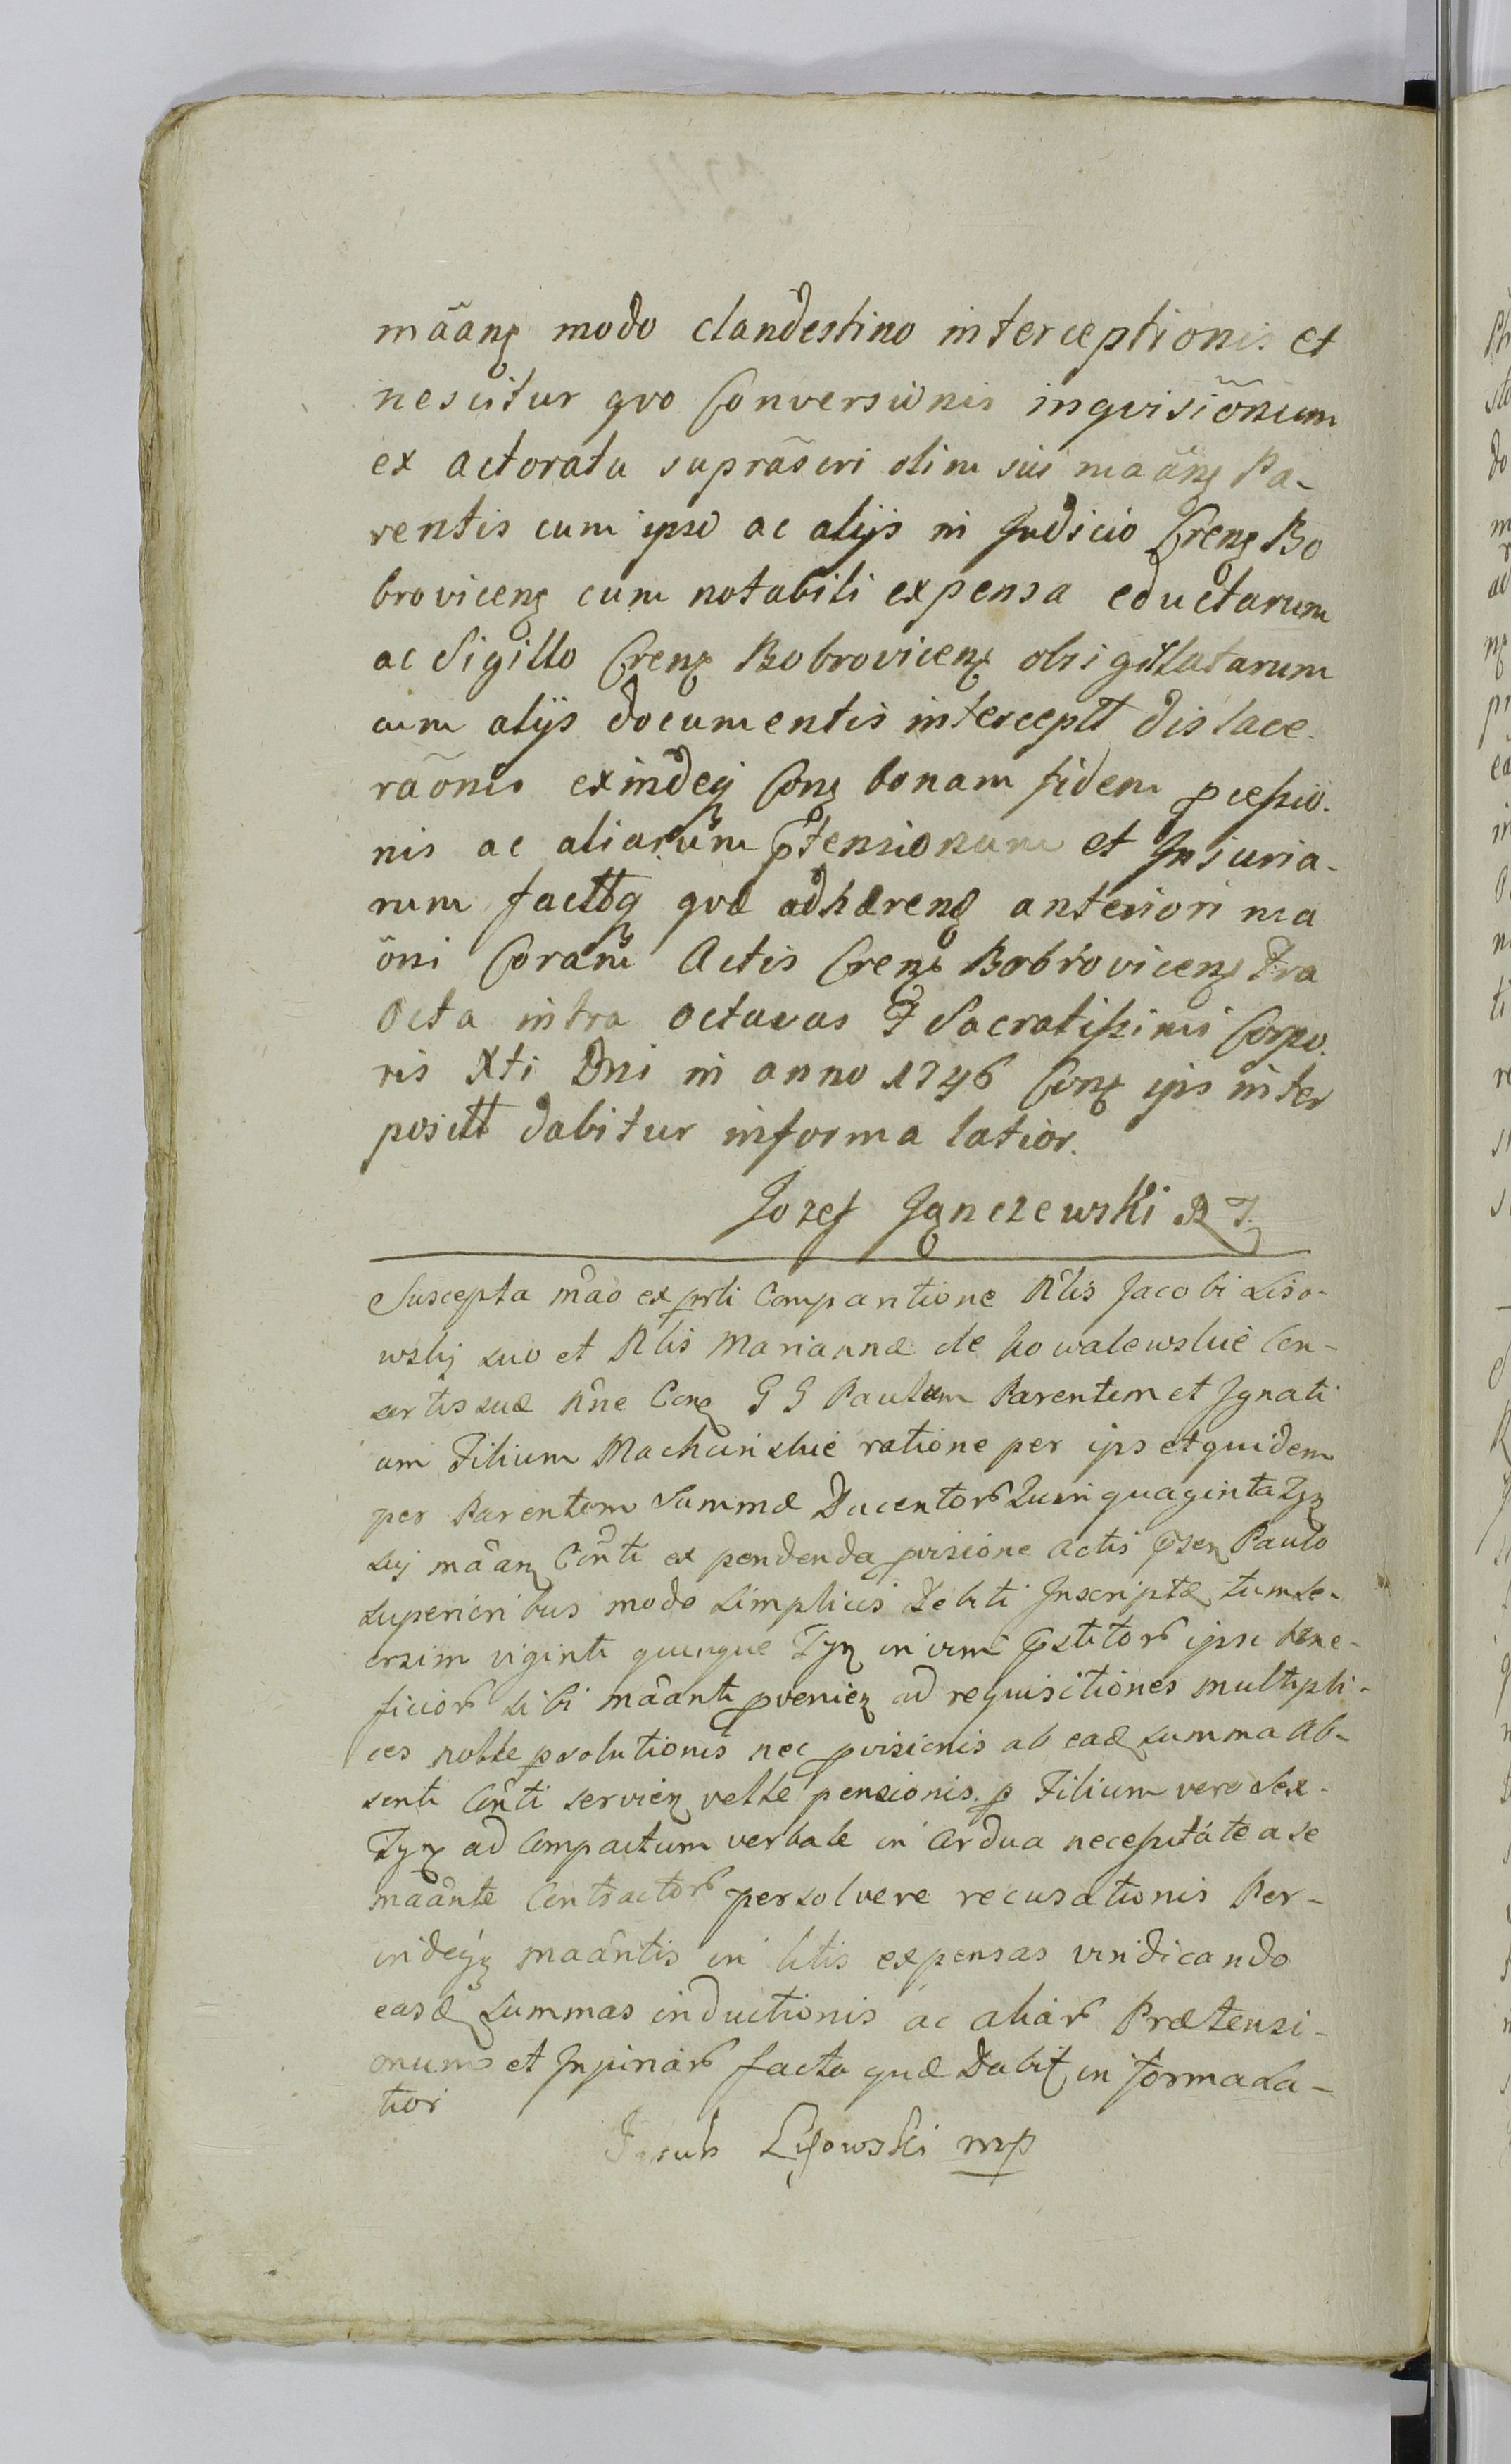 mãanꝫ modo clandestino interceptionis et
nescitur qvo Conversionis inqvisiõnum
ex actoratu suprãscri olim sui maãnꝫ Pa-
rentis cum ipso ac alijs in Judicio Crenꝫ Bo
brovicenꝫ cum notabili expensa eductarum
ac Sigillo Crenꝫ Bobrovicenꝫ obsigillatarum
cum alijs documentis intercept̃t dislace-
raõnis exindeqꝫ Conꝫ bonam fidem pcessio-
nis ac aliarum p̃tensionum et Injuria-
rum factt̃q qvæ adhærenꝫ anteriori ma
õni Coram Actis Crenꝫ Bobrovicenꝫ Fra
Octa intra octavas F Sacratissimi Corpo-
ris Xti Dni in anno 1746 Conꝫ ips inter
positt dabitur in forma latior.
Jozef Jączewski R T.
Suscepta mão ex prli Comparitione Nlis Jacobi Liso-
wskij suo et Nlis Mariannæ de Kowalewskie Con-
sortis suæ nñe Conꝫ G G Paulum Parentem et Ignati
um Filium Machcinskie ratione per ips et quidem
per Parentem Summæ Ducentorꝝ Quinquaginta Tyꝫ
suj mãanꝫ Cõnti ex pendenda pvisione actis p̃senꝫ Paulo
superioribus modo simplicis Debiti Inscriptæ, tum se-
orsim viginti quinque Tyꝫ in vim p̃stitorꝝ ipsi bene-
ficiorꝝ sibi mãanti pvenienꝫ ad requisitiones multipli-
ces nolle psolutionis nec pvisionis ab eadꝫ summa Ab-
senti Cõnti servienꝫ velle pensionis. p Filium vero Sex
Tyꝫ ad Compactum verbale in ardua necessitate a se
maãnte Contractorꝝ persolvere recusationis Per-
indeqꝫ maãntis in litis expensas vindicando
easdꝫ summas inductionis ac aliarꝝ Prætensi-
onum et Injuriarꝝ facta quæ Dabit in forma La-
tiori
Jakub Lisowski mp